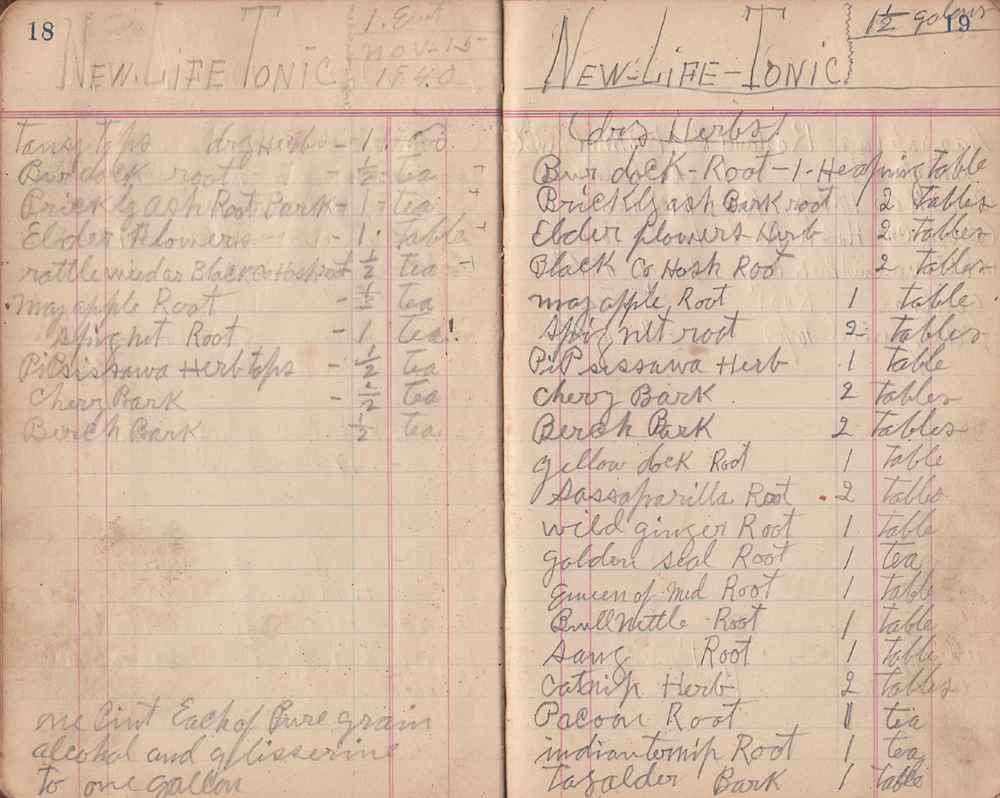 18
NEW-LIFE TONIC
1.
NOV-15
1940
tansy tops dry Herbs - 1.
Burdock root - 1/2 - tea
Prickly ash Root Bark - 1 - tea
Elder flowers - 1. table
rattleweed or Black Co Hosh root 1/2 tea
may apple Root - 1/2 tea
Spignet Root - 1. tea!
PiPsissawa Herb tops - 1/2 tea
Chery Bark - 1/2 tea
Birch Bark 1/2 tea
one Pint Each of Pure grain
alcohol and glisserine
to one gallon
19
1 1/2 galons
NEW-LIFE-TONIC
(dry Herbs)
Bur dock-Root-1-Heapning table
Prickly ash Bark root 2 tables
Elder flowers Herb 2 tables
Black Co Hosh Root 2 tables
may apple Root 1 table
Spignet root 2- tables
PiPsissawa Herb 1 table
Chery Bark 2 tables
Berch Bark 2 tables
yellow dock Root 1 table
Sassaparilla Root 2 tables
wild ginger Root 1 table
golden seal Root 1 tea
queen of med Root 1 table
Bull Nettle Root 1 table
Sang Root 1 table
Catnip Herb 2 tables
Pacoon Root 1 tea
indian ternip Root 1 tea
tagalder Bark 1 table